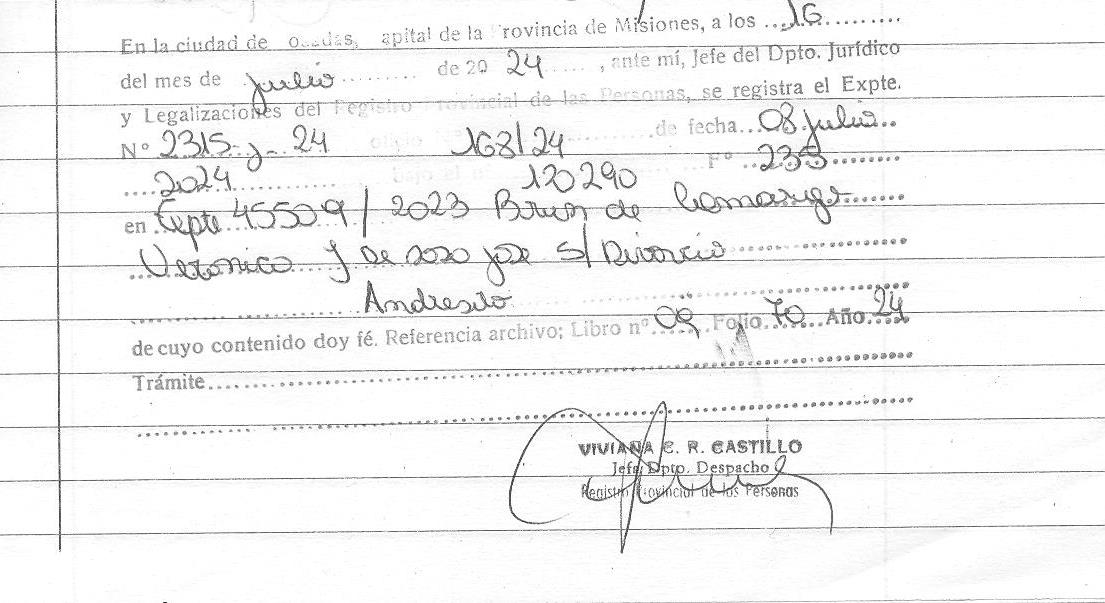 En la ciudad de osadas, apital de la rovincia de Misiones, a los ...16..........
del mes de julio ......... de 20 24 ....., ante mí, Jefe del Dpto. Jurídico
y Legalizaciones del Registro Provincial de las Personas, se registra el Expte.
Nº 2315-J-24 oficio 168/24 ............ de fecha...08 julio..
....2024............ bajo el nº 120290 Fº ..235.........
en ..Expte 45509/2023 Brun de Camargo.......
..Veronica y De ... José S/ Divorcio..................
Andresito
de cuyo contenido doy fé. Referencia archivo; Libro nº.09.. Folio.70...Año.24
Trámite.............................................................
.............................................................
VIVIANA C. R. CASTILLO
Jefe Dpto. Despacho
Registro Provincial de las Personas